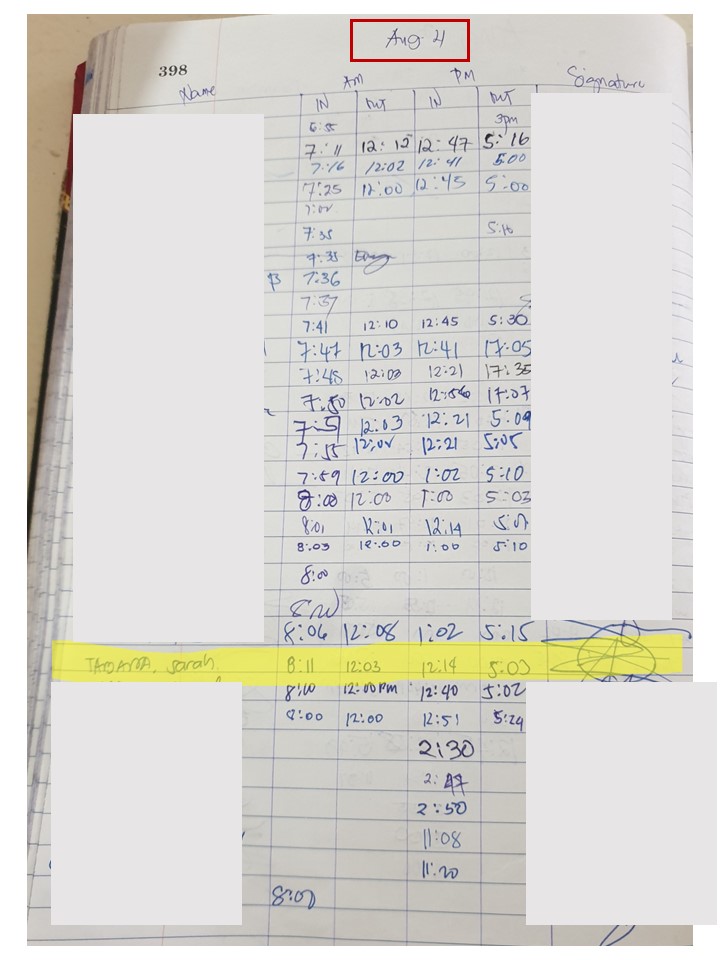 Aug 4
398
Name AM PM Signature
IN OUT IN OUT
6:55 3pm
7:11 12:12 12:47 5:16
7:16 12:02 12:41 5:00
7:25 12:00 12:45 5:00
7:35 5:10
7:35
7:36
7:37
7:41 12:10 12:45 5:30
7:47 12:03 12:41 17:05
7:48 12:21 17:35
7:50 12:02 12:56 17:07
7:51 12:03 12:21 5:09
7:55 12:21 5:05
7:59 12:00 1:02 5:10
8:00 12:00 1:00 5:03
8:01 12:01 12:14
8:03 12:00 1:00 5:10
8:00
8:06 12:08 1:02 5:15
Sarah 8:11 12:03 12:14 5:03
12:00PM 12:40 5:02
8:00 12:00 12:51 5:24
2:30
2:47
2:50
11:08
11:20